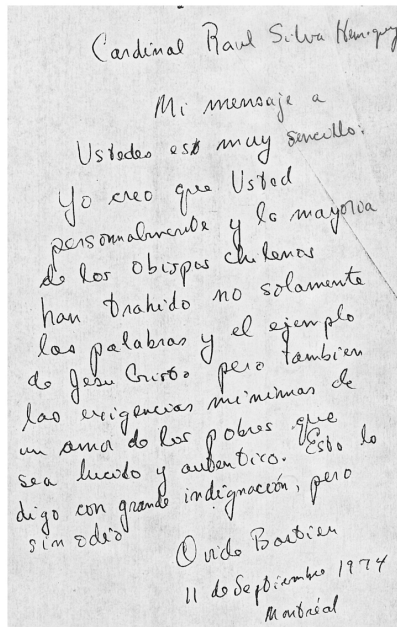 Cardinal Raul Silva Henriquez
Mi mensaje a
Ustedes est muy sencillo:
Yo creo que Usted
personnalmente y la mayoria
de los obispos chilenos
han trahido no solamente
las palabras y el ejemplo
de Jesu Cristo pero tambien
las exigencias minimas de
un amor de los pobres que
sea lucido y autentico. Esto lo
digo con grande indignación, pero
sin odio
Bastien
11 de Septiembre 1974
Montréal